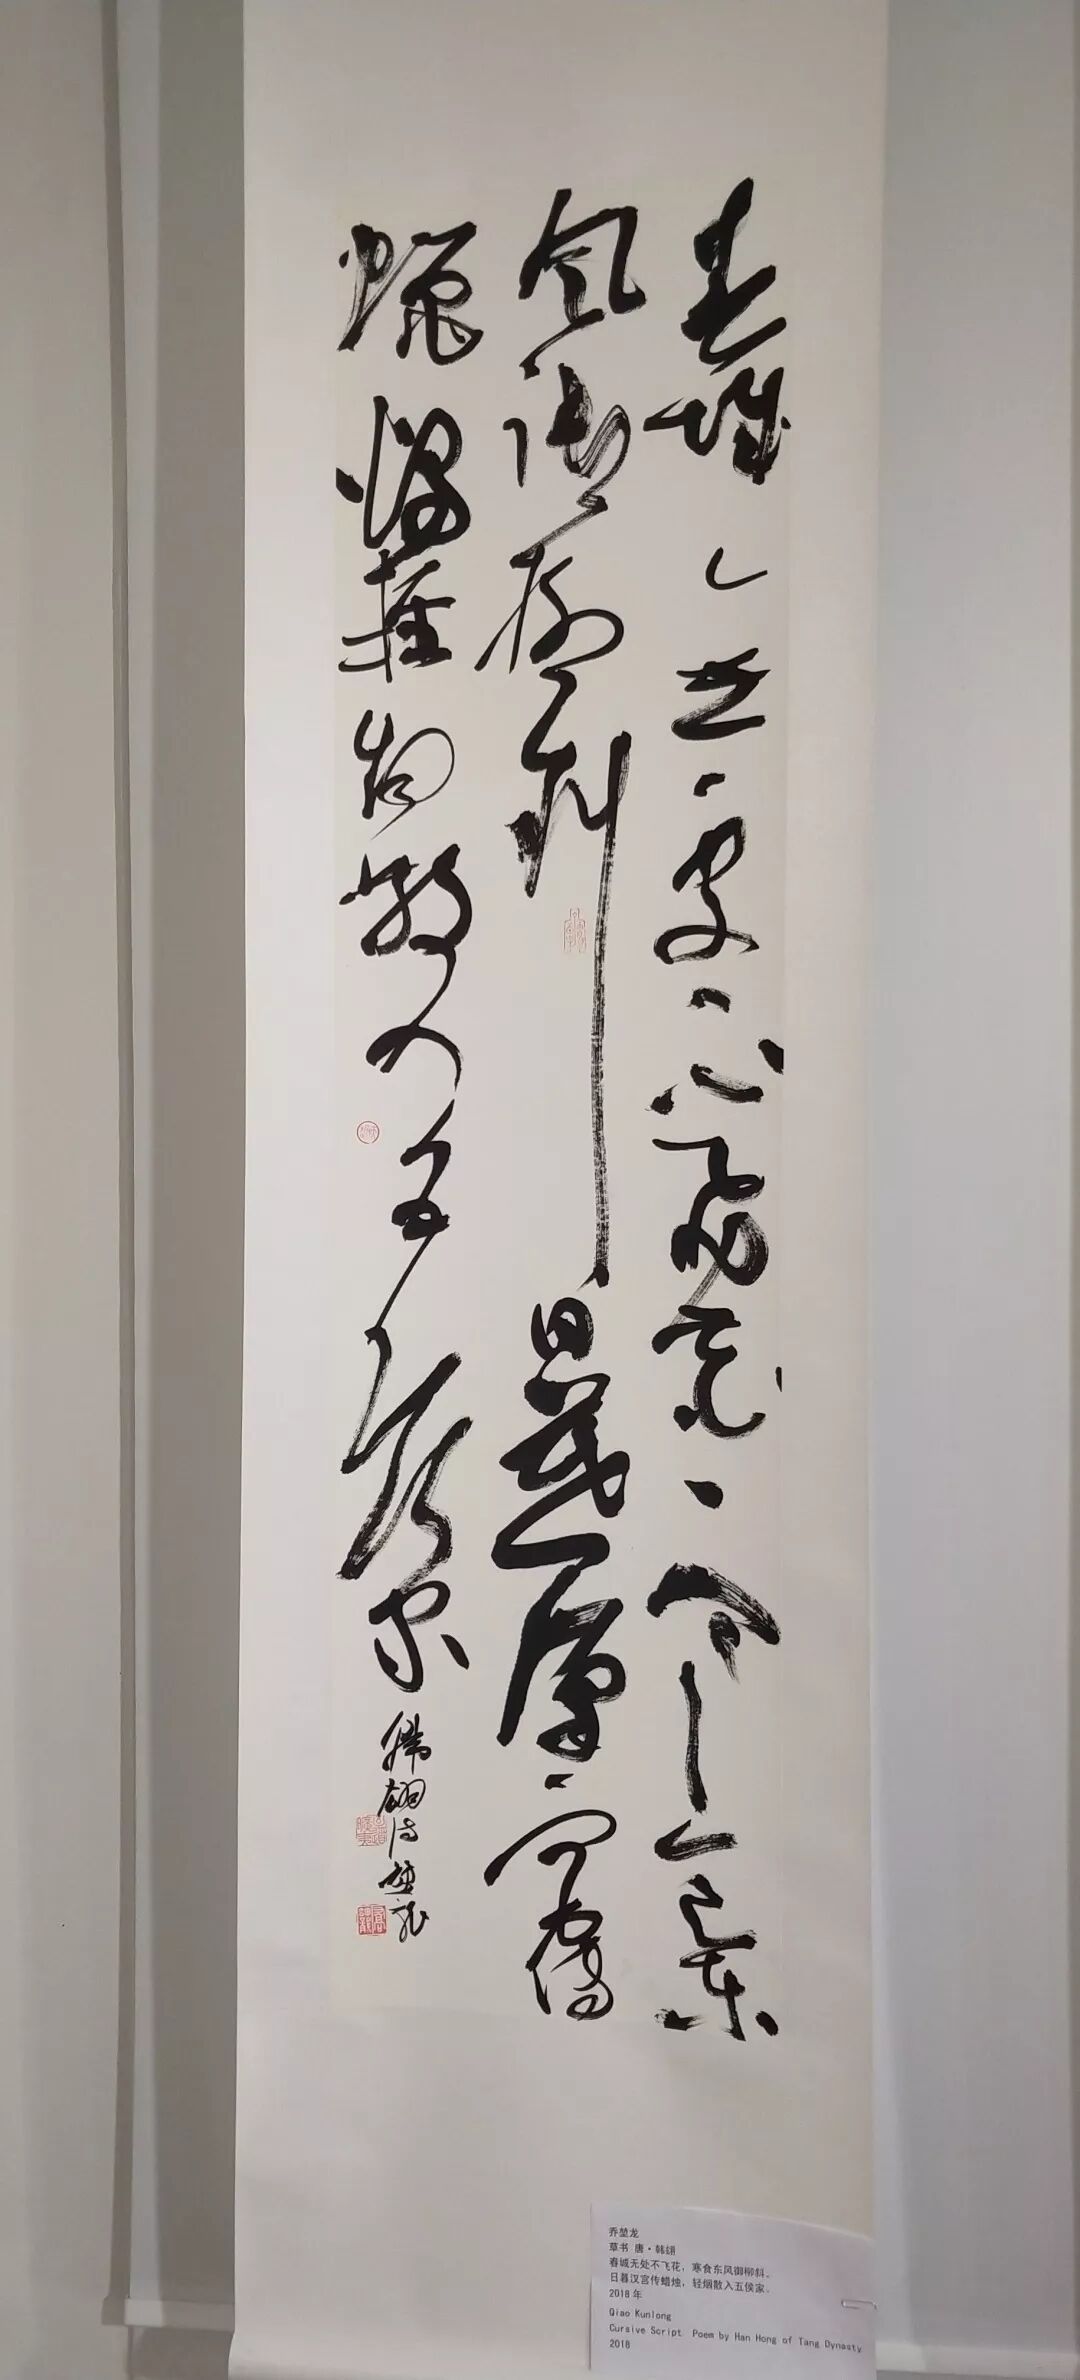 春城無處不飛花寒食東
風御柳斜日暮漢宮傳
蠟燭輕烟散入五侯家
韓翃詩堃龍
乔堃龙
草书 唐·韩翃
春城无处不飞花，寒食东风御柳斜。
日暮汉宫传蜡烛，轻烟散入五侯家。
2018年
Qiao Kunlong
Cursive Script Poem by Han Hong of Tang Dynasty
2018